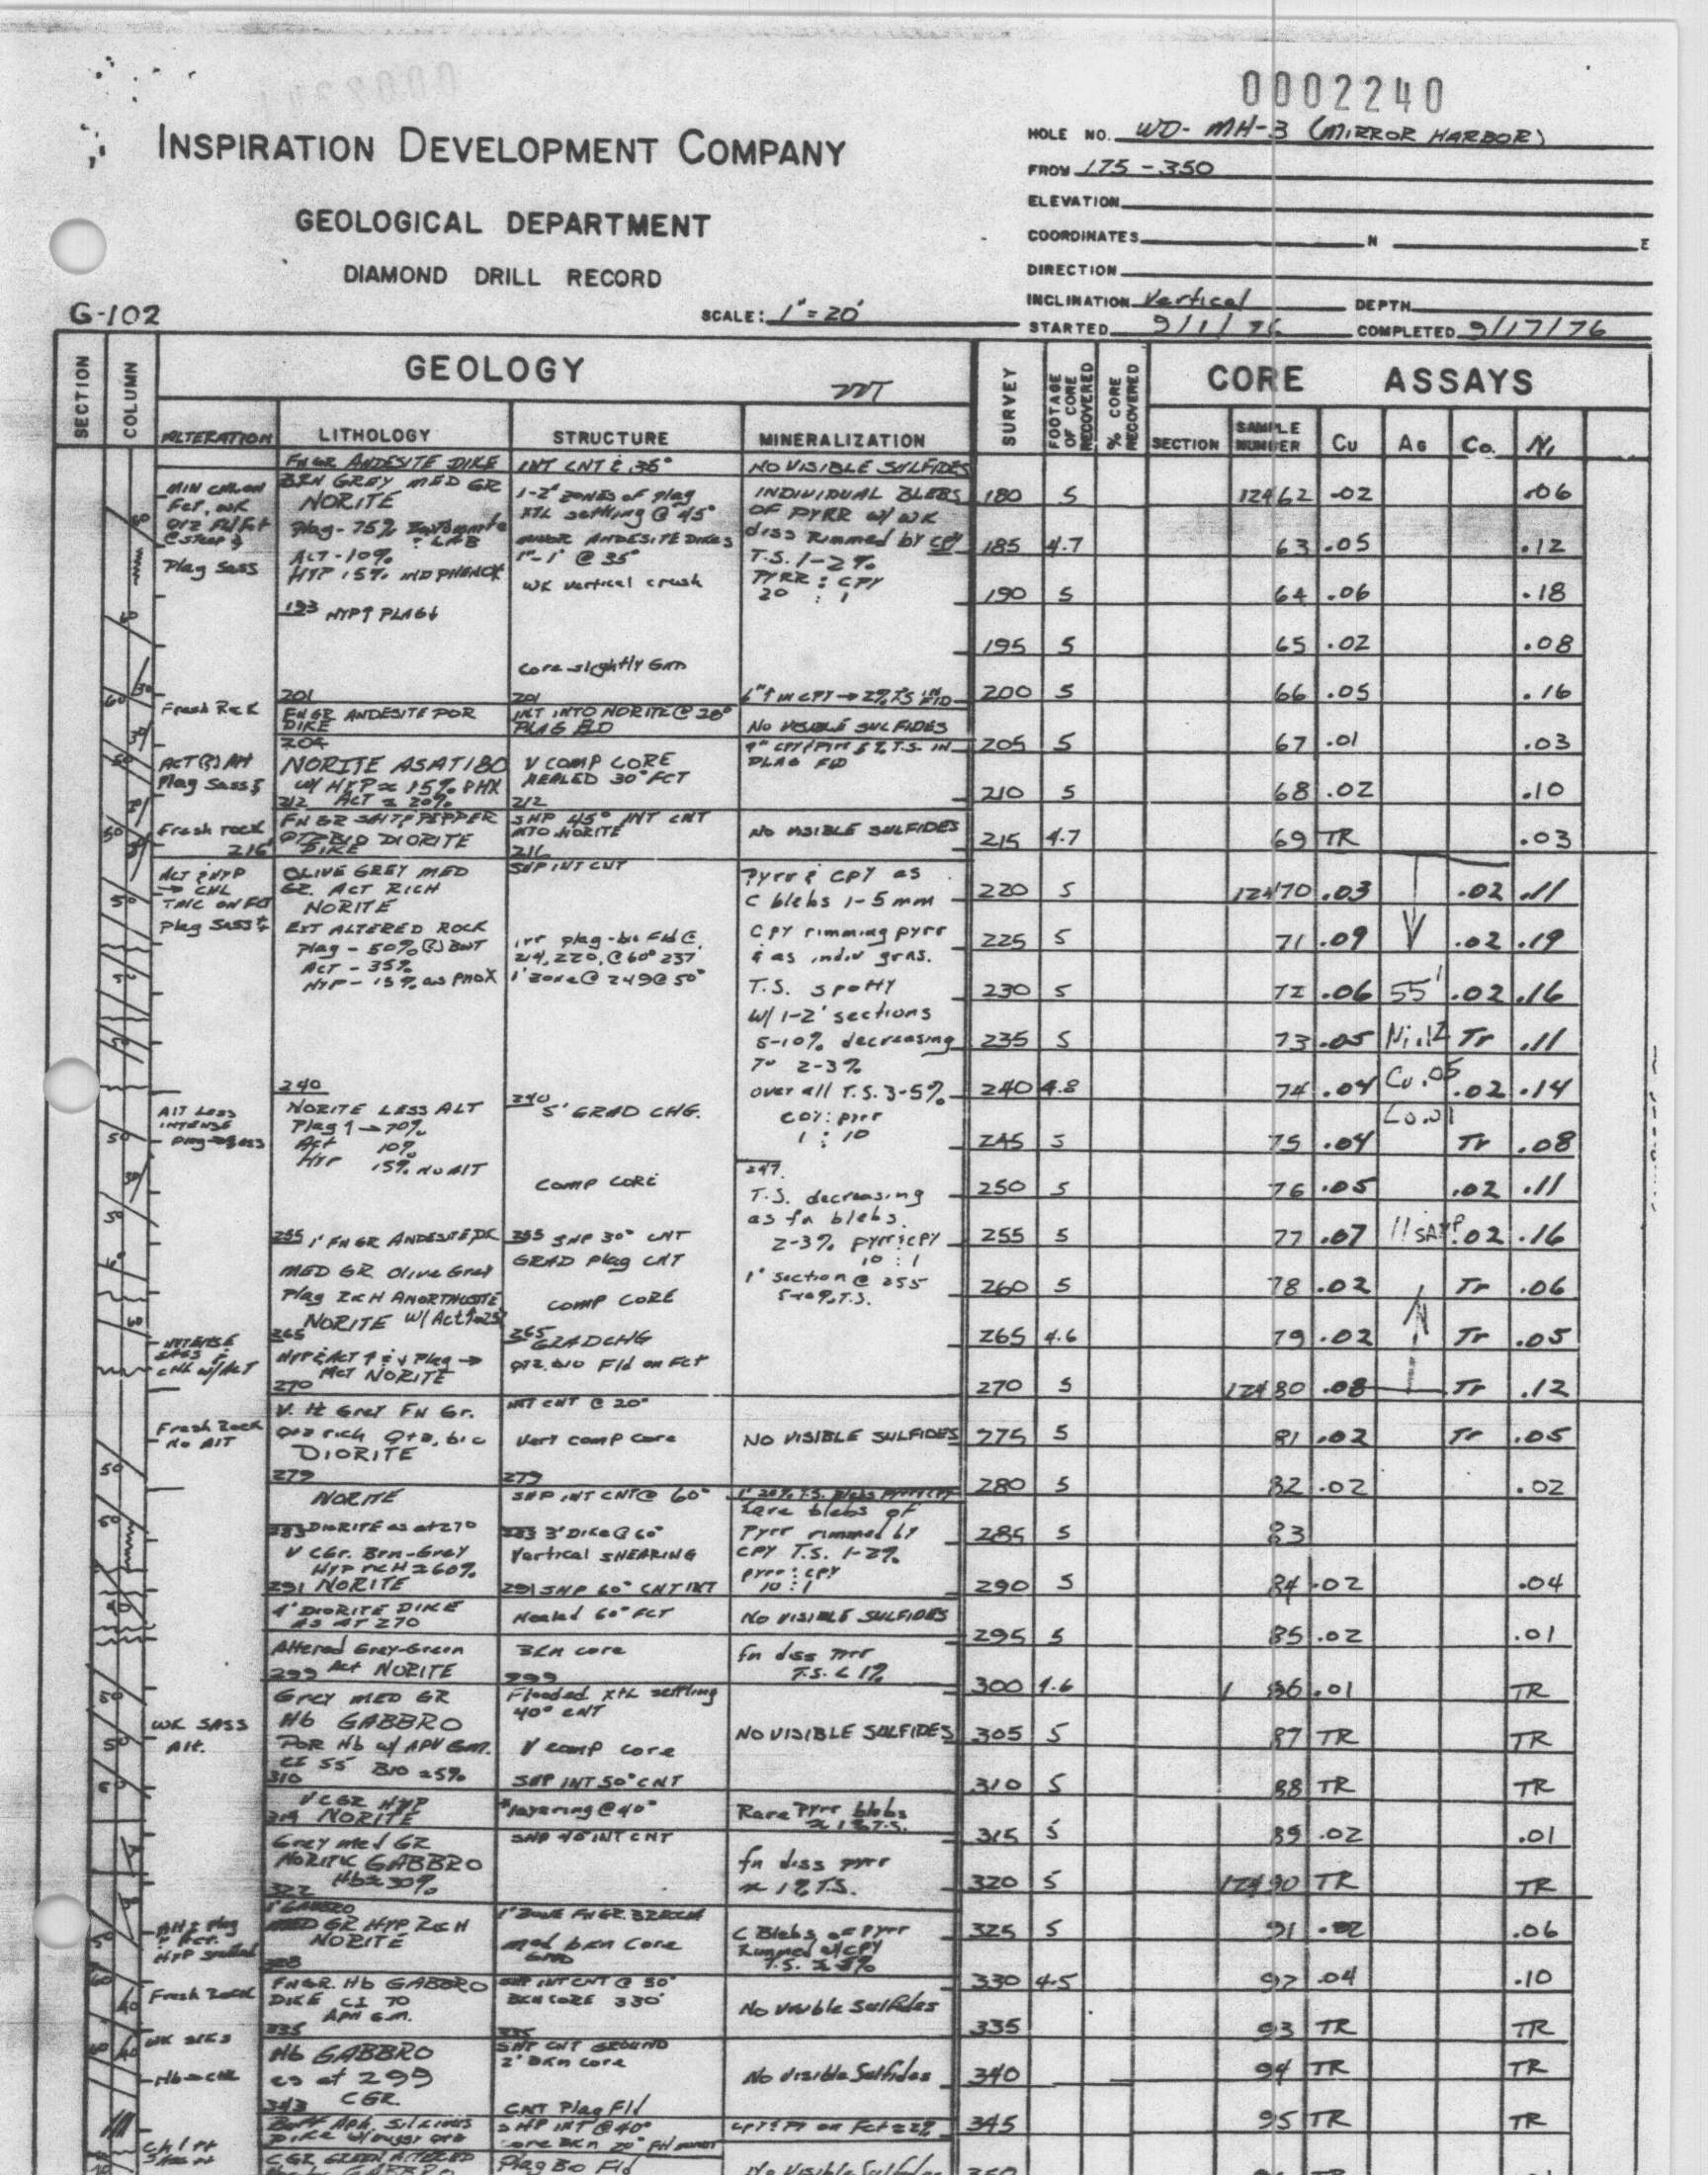 0002240
INSPIRATION DEVELOPMENT COMPANY
GEOLOGICAL DEPARTMENT
DIAMOND DRILL RECORD
G-102
SCALE: 1"=20'
HOLE NO. WD-MH-3 (MIRROR HARBOR)
FROM 175-350
ELEVATION
COORDINATES N E
DIRECTION
INCLINATION Vertical DEPTH
STARTED 9/1/76 COMPLETED 9/17/76
SECTION COLUMN GEOLOGY SURVEY FOOTAGE OF CORE RECOVERED % CORE RECOVERED CORE ASSAYS
ALTERATION LITHOLOGY STRUCTURE MINERALIZATION SECTION SAMPLE NUMBER Cu Ag Co Ni
FN GR ANDESITE DIKE
BRN GREY MED GR
NORITE
Plag-75%
ACT-10%
HYP 15% IND PHENOX
193 HYP↑ PLAG↓
201
FN GR ANDESITE POR
DIKE
204
NORITE AS AT 180
w/ HYP ≈ 15% PHX
212 ACT ≈ 20%
FN GR SALT & PEPPER
QTZ BIO DIORITE
DIKE
OLIVE GREY MED
GR. ACT RICH
NORITE
EXT ALTERED ROCK
Plag - 50%
ACT - 35%
HYP - 15% as PhoX
240
NORITE LESS ALT
Plag ↑ → 70%
Act 10%
HYP 15% NO ALT
255 1' FN GR ANDESITE DK
MED GR Olive Grey
Plag RCH ANORTHOSITE
NORITE W/ Act
265
HYP & ACT ↑ & ↓ Plag →
NORITE
270
V. lt Grey FN Gr.
Qtz rich Qtz, bio
DIORITE
279
NORITE
283 DIORITE as at 270
V CGr. Brn-Grey
HYP RCH ≈ 60%
291 NORITE
4' DIORITE DIKE
AS AT 270
Altered Grey-Green
299 Act NORITE
Grey MED GR
Hb GABBRO
POR Hb w/ APH GM.
CI 55 BIO ≈5%
310
V CGR HYP
314 NORITE
Grey med GR
NORITIC GABBRO
322 Hb≈30%
1' GABBRO
MED GR HYP RCH
NORITE
328
FN GR. Hb GABBRO
DIKE CI 70
APH G.M.
335
Hb GABBRO
as at 299
343 CGR.
CGR GREEN ALTERED
GABBRO
Plag Sass
Fresh Rck
Plag Sass
Fresh rock
216
ACT & HYP
→ CHL
TALC ON FCT
Plag Sass
Alt Less
INTENSE
INTENSE
CHL w/ ACT
Fresh Rock
No ALT
WK SASS
Alt.
Fresh Rock
Hb→CHL
INT CNT @ 35°
1-2' ZONES of plag
XTL settling @ 45°
MINOR ANDESITE DIKES
1"-1' @ 35°
WK vertical crush
Core slightly Grn
201
INT INTO NORITE @ 20°
PLAG FLD
V COMP CORE
HEALED 30° FCT
212
SHP 45° INT CNT
INTO NORITE
216
SHP INT CNT
irr plag-bio Fld @
214, 220, @ 60° 237
1' Zone @ 249 @ 50°
240 5' GRAD CHG.
COMP CORE
255 SHP 30° CNT
GRAD Plag CNT
COMP CORE
265 GRAD CHG
QTZ BIO Fld on Fct
INT CNT @ 20°
Very comp core
279
SHP INT CNT @ 60°
283 3' Dike @ 60°
Vertical SHEARING
291 SHP 60° CNT INT
Healed 60° FCT
BKN core
299
Flooded XTL settling
40° CNT
V comp core
SHP INT 50° CNT
layering @ 40°
SHP 40 INT CNT
Mod bkn Core
SHP INT CNT @ 50°
BKN CORE 330'
335
SHP CNT GROUND
2' Bkn core
CNT Plag Fld
SHP INT @ 40°
Plag Bo Fld
NO VISIBLE SULFIDES
INDIVIDUAL BLEBS
OF PYRR w/ WK
diss Rimmed by CPY
T.S. 1-2%
PYRR : CPY
20 : 1
6"↑ IN CPY → 2% TS IN FLD
NO VISIBLE SULFIDES
4" CPY/PYRR 5% T.S. IN
PLAG FLD
NO VISIBLE SULFIDES
Pyrr & CPY as
C blebs 1-5 mm
CPY rimming pyrr
& as indiv grns.
T.S. spotty
W/ 1-2' sections
5-10% decreasing
To 2-3%
over all T.S. 3-5%
cpy: pyrr
1 : 10
247
T.S. decreasing
as fn blebs.
2-3% pyrr:cpy
10 : 1
1' section @ 255
5-10% T.S.
NO VISIBLE SULFIDES
Rare blebs of
Pyrr rimmed by
CPY T.S. 1-2%
pyrr : cpy
10 : 1
NO VISIBLE SULFIDES
fn diss Pyrr
T.S. < 1%
NO VISIBLE SULFIDES
Rare Pyrr blebs
≈ 1% T.S.
fn diss pyrr
≈ 1% T.S.
C Blebs of Pyrr
Rimmed w/ CPY
No visible Sulfides
No visible Sulfides
180 5 12462 .02 .06
185 4.7 63 .05 .12
190 5 64 .06 .18
195 5 65 .02 .08
200 5 66 .05 .16
205 5 67 .01 .03
210 5 68 .02 .10
215 4.7 69 TR .03
220 5 12470 .03 .02 .11
225 5 71 .09 .02 .19
230 5 72 .06 55' .02 .16
235 5 73 .05 Ni .12 Tr .11
240 4.8 74 .04 Cu .05 .02 .14
Co .01
245 5 75 .04 Tr .08
250 5 76 .05 .02 .11
255 5 77 .07 11 SAMP .02 .16
260 5 78 .02 Tr .06
265 4.6 79 .02 Tr .05
270 5 12480 .08 Tr .12
275 5 81 .02 Tr .05
280 5 82 .02 .02
285 5 83
290 5 84 .02 .04
295 5 85 .02 .01
300 4.6 86 .01 TR
305 5 87 TR TR
310 5 88 TR TR
315 5 89 .02 .01
320 5 12490 TR TR
325 5 91 .02 .06
330 4.5 92 .04 .10
335 93 TR TR
340 94 TR TR
345 95 TR TR